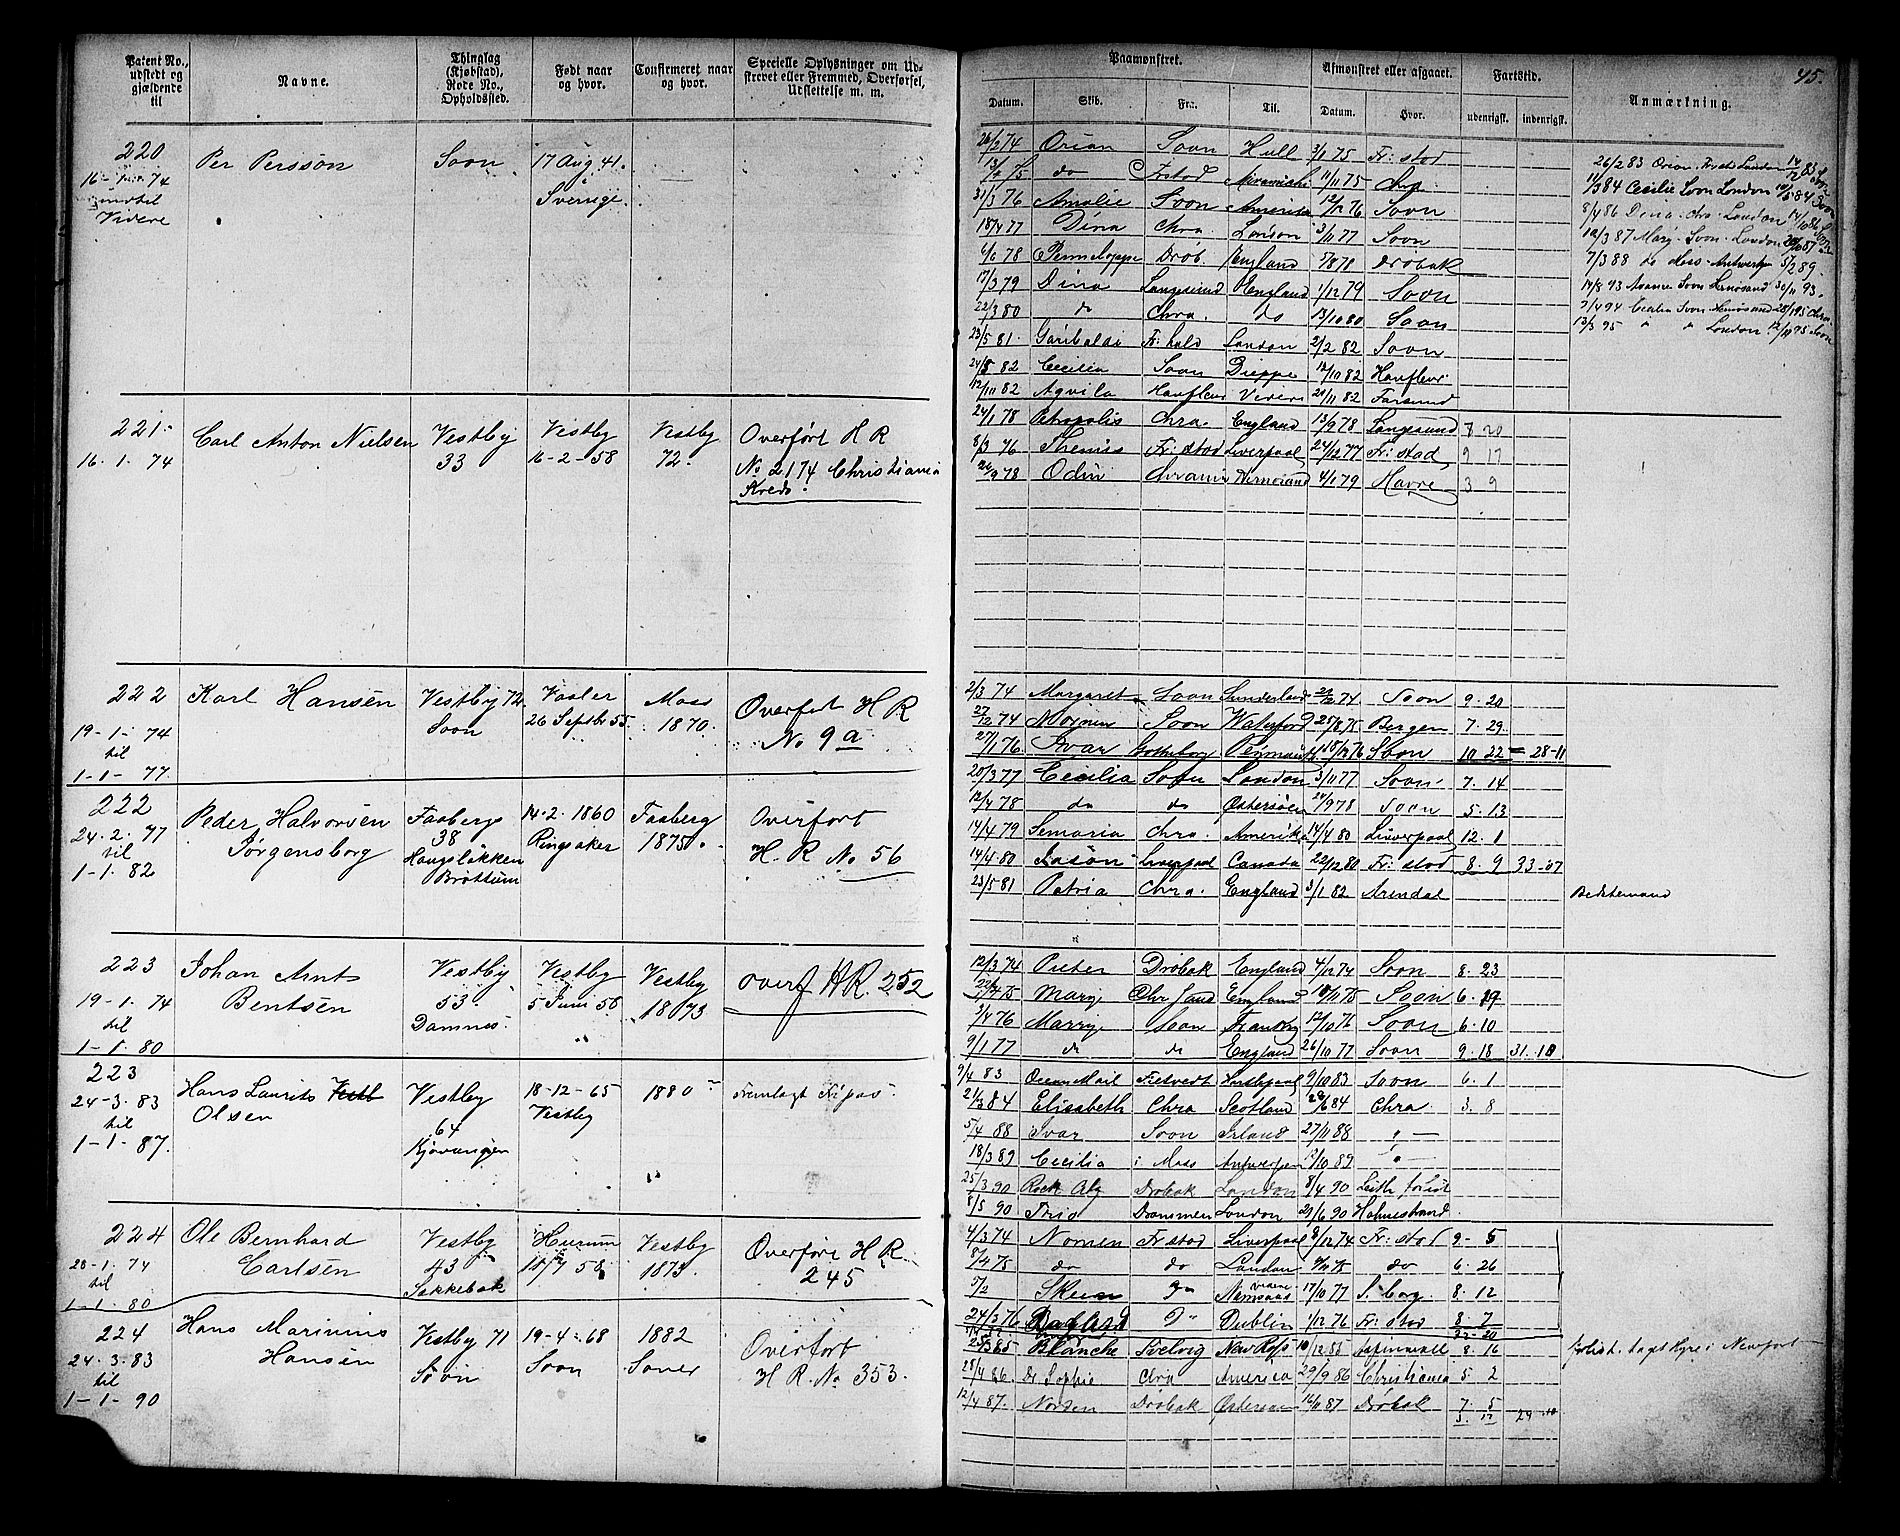 Patent No., udstedt og gjældende til
Navne.
Thinglag (Kjøbstad), Rode No., Opholdssted.
Født naar og hvor.
Confirmeret naar og hvor.
Specielle Oplysninger om Udskrevet eller Fremmed, Overførsel, Udslettelse m. m.
220
16-1-74
indtil
Videre
Per Persson
Soon
17 Aug 41.
Sverige.
221
16. 1. 74
Carl Anton Nielsen
Vestby
33
Vestby
16-2-58
Vestby
72.
Overført H R
No 2174 Christiania
Kreds.
222
19-1-74
til
1-1-77.
Karl Hansen
Vestby 72
Soon
Vaaler
26 Septb 55
Moss
1870.
Overført H R
No 9 a
222
24. 2. 77
til
1-1. 82
Peder Halvorsen
Jørgensborg
Faaberg
38
Haugsløkken
Brøttum
14-2. 1860
Ringsaker
Faaberg
1875.
Overført
H. R No 56
223
19-1. 74
til
1-1. 80
Johan Arnt
Bentsen
Vestby
53
Damnes.
Vestby
5 Juni 56
Vestby
1873
overf H R. 252
223
24-3. 83
til
1-1-87.
Hans Laurits Vestb
Olsen
Vestby
64
Kjøvangen
18-12-65
Vestby
1880
Fremlagt Fripas.
224
20-1. 74
til
1-1. 80
Ole Bernhard
Carlsen
Vestby
43
Sakkebak
Hurum
Vestby
1873
Overført H R.
245
224
24. 3. 83
til
1-1. 90
Hans Marinius
Hansen
Vestby 71
Soon
19-4-68
Soon
1882
Soner
Overført
H R. No 353.
Paamønstret.
Afmønstret eller afgaaet.
Fartstid.
45.
Datum.
Skib.
Fra.
Til.
Datum.
Hvor.
udenrigsk.
indenrigsk.
Anmærkning.
26/2 74 Orion Soon Hull 3/1 75 Fr: stad
do Frstad Miramichi 11/11 75 Chra.
31/3 76 Amalie Soon Amerika 12/12 76 Soon
18/4 77 Dina Chra. London 3/11 77 Soon
4/6 78 Penneloppe Drøb. England 5/8 78 Drøbak
17/3 79 Dina Langesund England 1/12 79 Soon
22/3 80 do Chra. do 13/10 80 Soon
23/5 81. Garibaldi Fr: hald London 2/2 82 Soon
24/5 82 Cecilia Soon Dieppe 12/10 82 Honfleur
12/10 82 Aqvila Honfleur Videre 20/11 82 Farsund
26/2 83 Orion. Frstd London
11/3 84 Cecilie Soon London 84 Soon
8/4 86 Dina. Chra. London 14/10 86
12/3 87 Marg. Soon. London 87
7/3 88 do Moss. Antwerp 5/2 89.
14/8 93 Soon Hernøsand 30/11 93.
7/4 94 Cecilia Soon Hernøsand 28/1 95 Chra.
13/3 95 " " London 12/11 95 Soon
24/1 78 Petropolis Chra. England 13/9 78 Langesund 7 20
8/3 76 Themis Fr: stad Liverpool 24/12 77 Fr: stad 9 17
26/9 78 Odin Hernøsand 4/1 79 Havre 3 9
2/3 74 Margaret Soon Sunderland 74 Soon 9. 20
27/12 74 Soon Waterford 25/8 75 Bergen 7. 29
27/1 76 Ivar Gothebg 76 Soon 10 22 = 28-11
20/3 77 Cecilia Soon London 3/11 77 Soon 7. 14
12/4 78 do do Østersøen 24/9 78 Soon 5. 13
14/4 79 Semaria Chra. Amerika 14/4 80 Liverpool 12. 1
14/4 80 Jason Liverpool Canada 22/12 80 Fr: stad 8. 9 33-07
23/5 81 Patria Chra. England 3/1 82 Arendal
Bedstemand
12/3 74 Drøbak England 4/12 74 Soon 8. 23
Chr sand England 18/11 75 Soon 6. 19
7/4 76 Soon 12/10 76 Soon 6. 10
9/1 77 do do England 26/10 77 Soon 9. 18 31. 10
9/4 83 Ocean Mail Hartlepool 9/10 83 Soon 6. 1
21/3 84 Elisabeth Chra Scotland 84 Chra. 3. 8
5/4 88 Ivar Soon Irland 27/11 88 " —
18/3 89 Cecilia Moss Antwerpen 12/10 89 " —
25/3 90 Drøbak London 8/4 90 Leith forlist
8/5 90 Trio Drammen London 29/6 90 Holmestrand
4/3 74 Nornen Fr stad Liverpool 9/12 74 Fr: stad 9. 5
8/4 75 do do London do 6. 26
Skien do 17/10 77 S. borg. 8. 12
24/3 76 Do Dublin 1/12 76 Fr: stad 8. 7
85 Blanche Svelvig New Ross 8. 16
28/4 86. Sophie Chra America 29/9 86 Christiania 5 2
12/4 87. Norden Drøbak Østersøen 16/11 87 Drøbak 7. 5